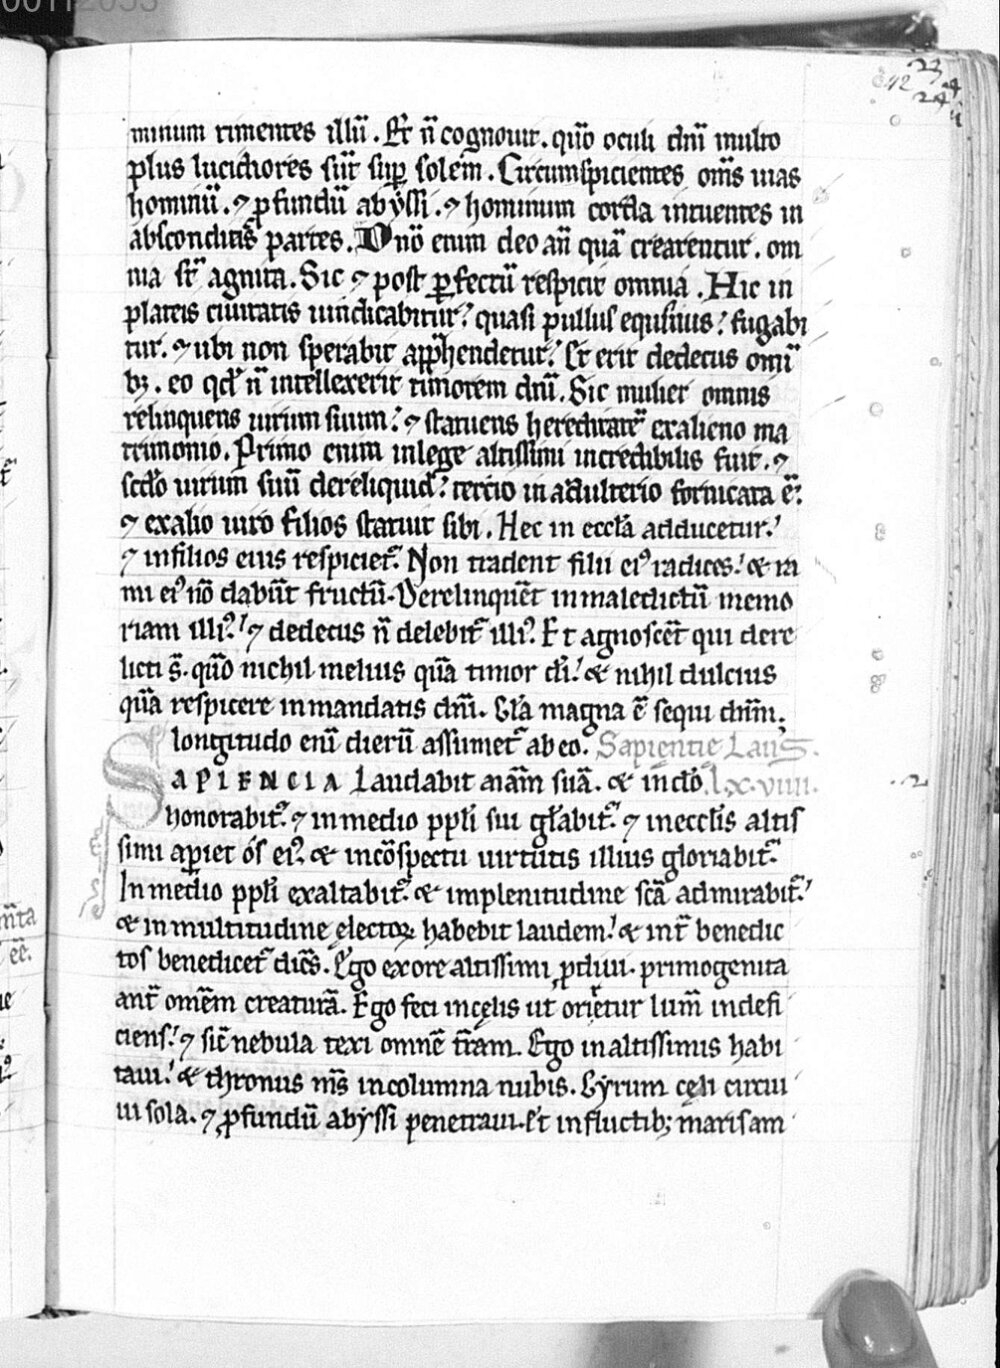 minum timentes illū. Et ñ cognouit. quō oculi dñi multo
plus lucidiores sūt suꝑ solem. Circumspicientes om̄s uias
hominū. ⁊ ꝓfundū abẏssi. ⁊ hominum corda intuentes in
absconditas partes. Dn̄o enim deo añ quā crearentur. om
nia st̄ agnita. Sic ⁊ post ꝑfectū respicit omnia. Hic in
plateis ciuitatis uindicabitur. quasi pullus equinus. fugabi
tur. ⁊ ubi non sperabit app̄hendetur. Et erit dedecus omi
bꝫ. eo qd̓ ñ intellexerit timorem dñi. Sic mulier omnis
relinquens uirum suum. ⁊ statuens hereditatē exalieno ma
trimonio. Primo enim inlege altissimi incredibilis fuit. ⁊
scd̓o uirum suū dereliquid. tercio in adulterio fornicata ē.
⁊ exalio uiro filios statuit sibi. Hec in eccl̄a adducetur.
⁊ infilios eius respiciet̄. Non tradent filii eiꝰ radices. & ra
mi eiꝰ nō dabūt fructū. Derelinquēt inmaledictū memo
riam illiꝰ. ⁊ dedecus ñ delebit̄ illiꝰ. Et agnoscēt qui dere
licti s̄. quō nichil melius quā timor dī. & nihil dulcius
quā respicere inmandatis dñi. Gl̄a magna ē sequi dñm.
longitudo enī dierū assumet̄ ab eo. Sapientię Laus.
SAPIENCIA Laudabit aīam suā. & in dō lx.viiii.
honorabit̄. ⁊ inmedio ppl̄i sui gl̄abit̄. ⁊ ineccl̄is altis
simi aperiet ós eiꝰ. & incōspectu uirtutis illius gloriabit̄.
In medio ppl̄i exaltabit̄. & implenitudine scā admirabit̄.
& in multitudine electoꝝ habebit laudem. & int̄ benedic
tos benedicet̄ dicēs. Ego exore altissimi ꝓdiui. primogenita
ant̄ omēm creaturā. Ego feci incęlis ut oriretur lumē indefi
ciens. ⁊ sic̄ nebula texi omnē t̄ram. Ego inaltissimis habi
taui. & thronus m̄s incolumna nubis. Gẏrum cęli circui
ui sola. ⁊ ꝓfundū abẏssi penetraui. Et influctibꝫ maris am